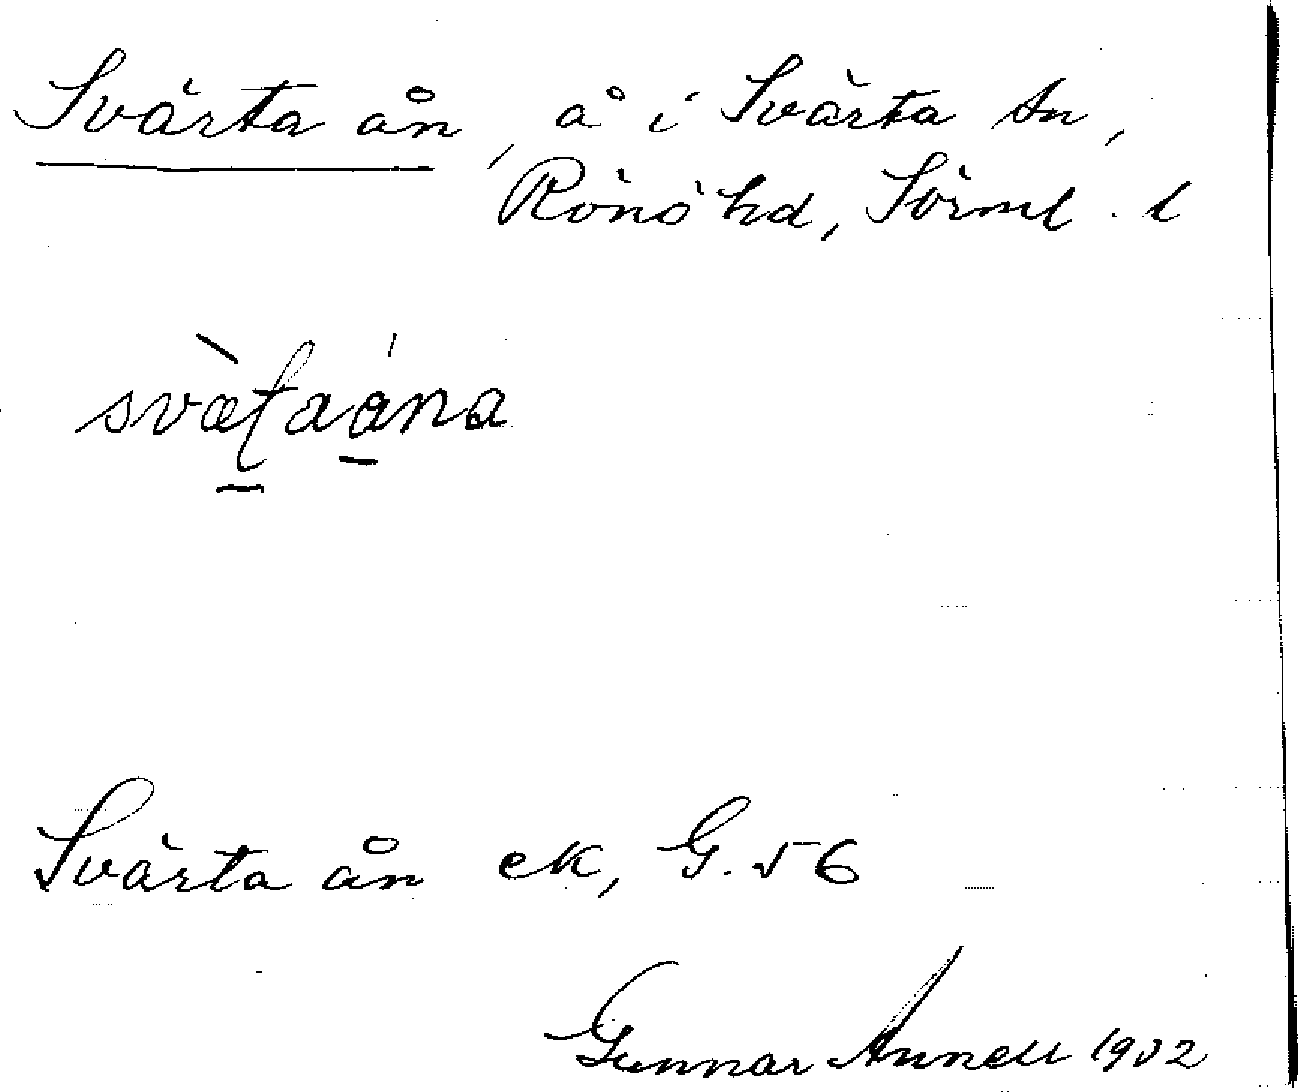 Svärta ån, å i Svärta sn,
Rönö hd, Sörml. l
svæ̀ʈaána
Svärta ån ek, G. 56
Gunnar Annell 1932